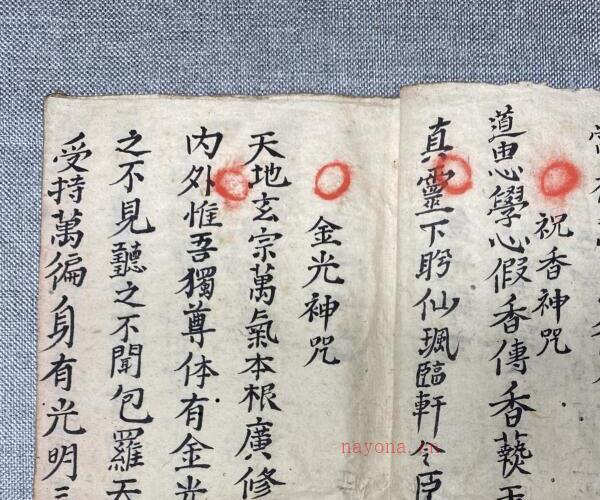 祝香神咒
道由心學心假香傳香爇
真靈下盻仙珮臨軒令臣
金光神咒
天地玄宗萬氣本根廣修
内外惟吾獨尊体有金光
之不見聽之不聞包羅天
受持萬徧身有光明三